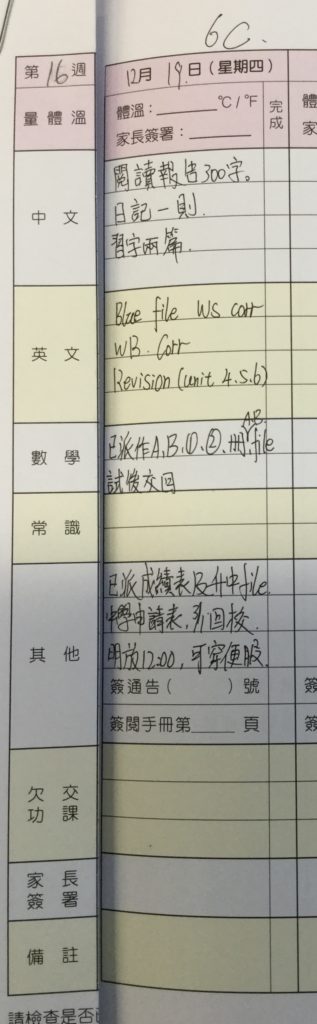 6C.
第16週
12月19日(星期四)
量體溫
體溫：______℃/℉
家長簽署：______
完成
體
家
中文
閱讀報告300字。
日記一則.
習字兩篇.
英文
Blue file WS corr
WB. Corr
Revision (unit 4.5.6)
數學
已派作A,B,①,②,冊,AB file
試後交回
常識
其他
已派成績表及升中file
中學申請表,
回校.
明放12:00, 可穿便服.
簽通告(      )號
簽
簽閱手冊第_____頁
簽
欠交功課
家長簽署
備註
請檢查是否